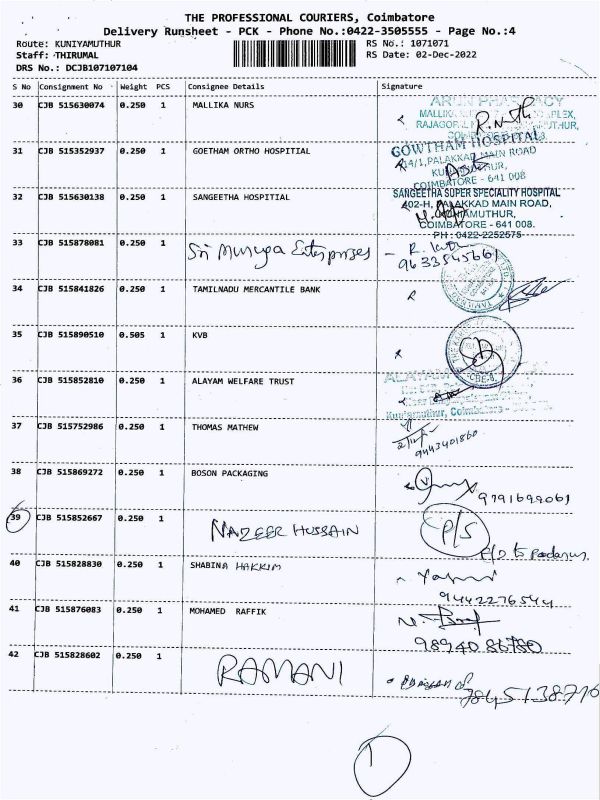 THE PROFESSIONAL COURIERS, Coimbatore
Delivery Runsheet - PCK - Phone No.:0422-3505555 - Page No.:4
Route: KUNIYAMUTHUR
RS No.: 1071071
Staff: THIRUMAL
RS Date: 02-Dec-2022
DRS No.: DCJB107107104
S No Consignment No Weight PCS Consignee Details Signature
30 CJB 515630074 0.250 1 MALLIKA NURS
ARUN PHARMACY
31 CJB 515352937 0.250 1 GOETHAM ORTHO HOSPITIAL
GOWTHAM HOSPITAL
PALAKKAD MAIN ROAD
COIMBATORE - 641 008
32 CJB 515630138 0.250 1 SANGEETHA HOSPITIAL
SANGEETHA SUPER SPECIALITY HOSPITAL
402-H, PALAKKAD MAIN ROAD,
KUNIAMUTHUR,
COIMBATORE - 641 008.
PH : 0422-2252575
33 CJB 515878081 0.250 1 Sri Muruga Enterprises
9633545661
34 CJB 515841826 0.250 1 TAMILNADU MERCANTILE BANK
35 CJB 515890510 0.505 1 KVB
CBE-8
36 CJB 515852810 0.250 1 ALAYAM WELFARE TRUST
ALAYAM
Kuniamuthur, Coimbatore
37 CJB 515752986 0.250 1 THOMAS MATHEW
9443401860
38 CJB 515869272 0.250 1 BOSON PACKAGING
9791699069
39 CJB 515852667 0.250 1 NAZEER HUSSAIN
P/S
40 CJB 515828830 0.250 1 SHABINA HAKKIM
9442276544
41 CJB 515876083 0.250 1 MOHAMED RAFFIK
9894086780
42 CJB 515828602 0.250 1 RAMANI
7845138716
1